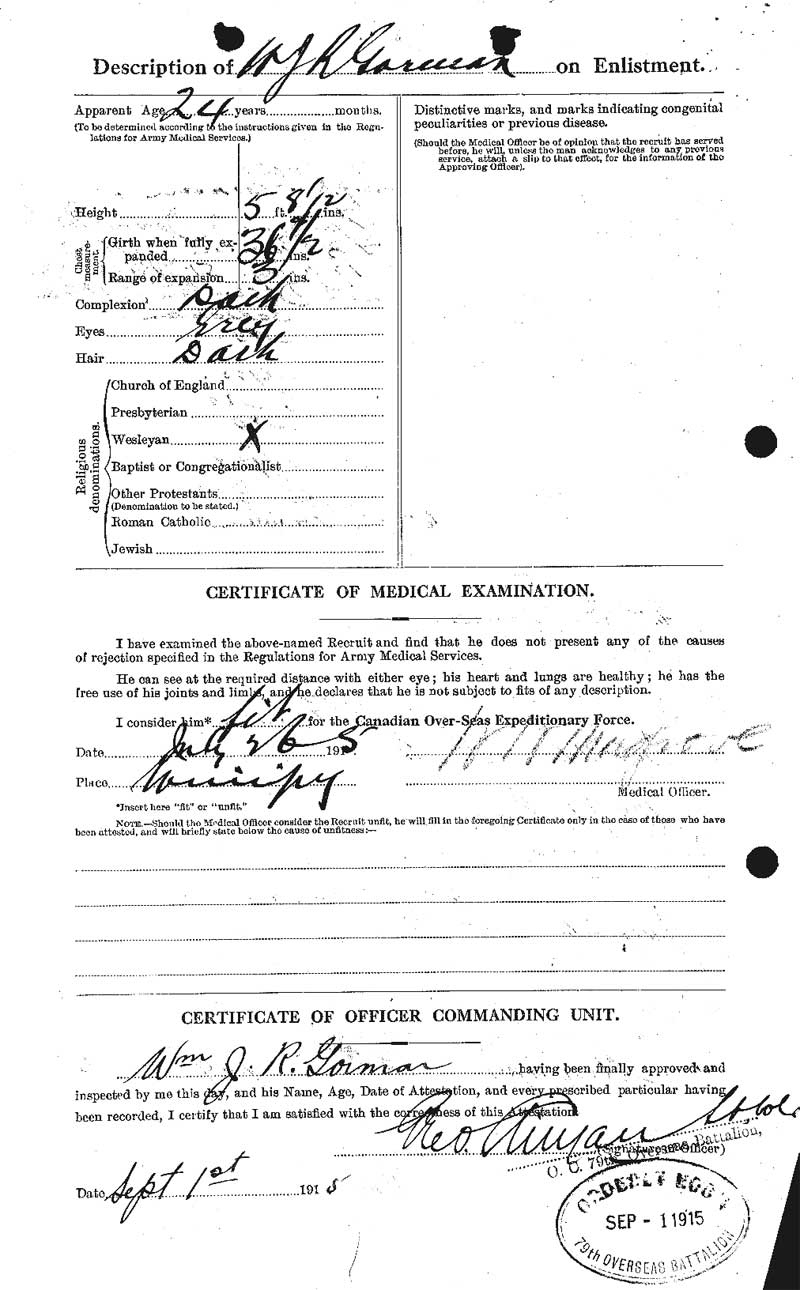 Description of W J R Gorman on Enlistment.
Apparent Age 24 years months.
(To be determined according to the instructions given in the Regulations for Army Medical Services.)
Height 5 ft. 8 1/2 ins.
Chest measurement.
Girth when fully expanded 36 1/2 ins.
Range of expansion 3 ins.
Complexion Dark
Eyes Grey
Hair Dark
Religious denominations.
Church of England
Presbyterian
Wesleyan X
Baptist or Congregationalist
Other Protestants
(Denomination to be stated.)
Roman Catholic
Jewish
Distinctive marks, and marks indicating congenital
peculiarities or previous disease.
(Should the Medical Officer be of opinion that the recruit has served
before, he will, unless the man acknowledges to any previous
service, attach a slip to that effect, for the information of the
Approving Officer).
CERTIFICATE OF MEDICAL EXAMINATION.
I have examined the above-named Recruit and find that he does not present any of the causes
of rejection specified in the Regulations for Army Medical Services.
He can see at the required distance with either eye; his heart and lungs are healthy; he has the
free use of his joints and limbs, and he declares that he is not subject to fits of any description.
I consider him* fit for the Canadian Over-Seas Expeditionary Force.
Date July 26 1915
Place Winnipeg
Medical Officer.
*Insert here "fit" or "unfit."
NOTE.—Should the Medical Officer consider the Recruit unfit, he will fill in the foregoing Certificate only in the case of those who have
been attested, and will briefly state below the cause of unfitness:—
CERTIFICATE OF OFFICER COMMANDING UNIT.
Wm J. R. Gorman having been finally approved and
inspected by me this day, and his Name, Age, Date of Attestation, and every prescribed particular having
been recorded, I certify that I am satisfied with the correctness of this Attestation
Geo. Clingan Lt Col.
(Signature of Officer)
O. C. 79th Overseas Battalion,
Date Sept 1st 1915
ORDERLY ROOM
SEP - 1 1915
79th OVERSEAS BATTALION